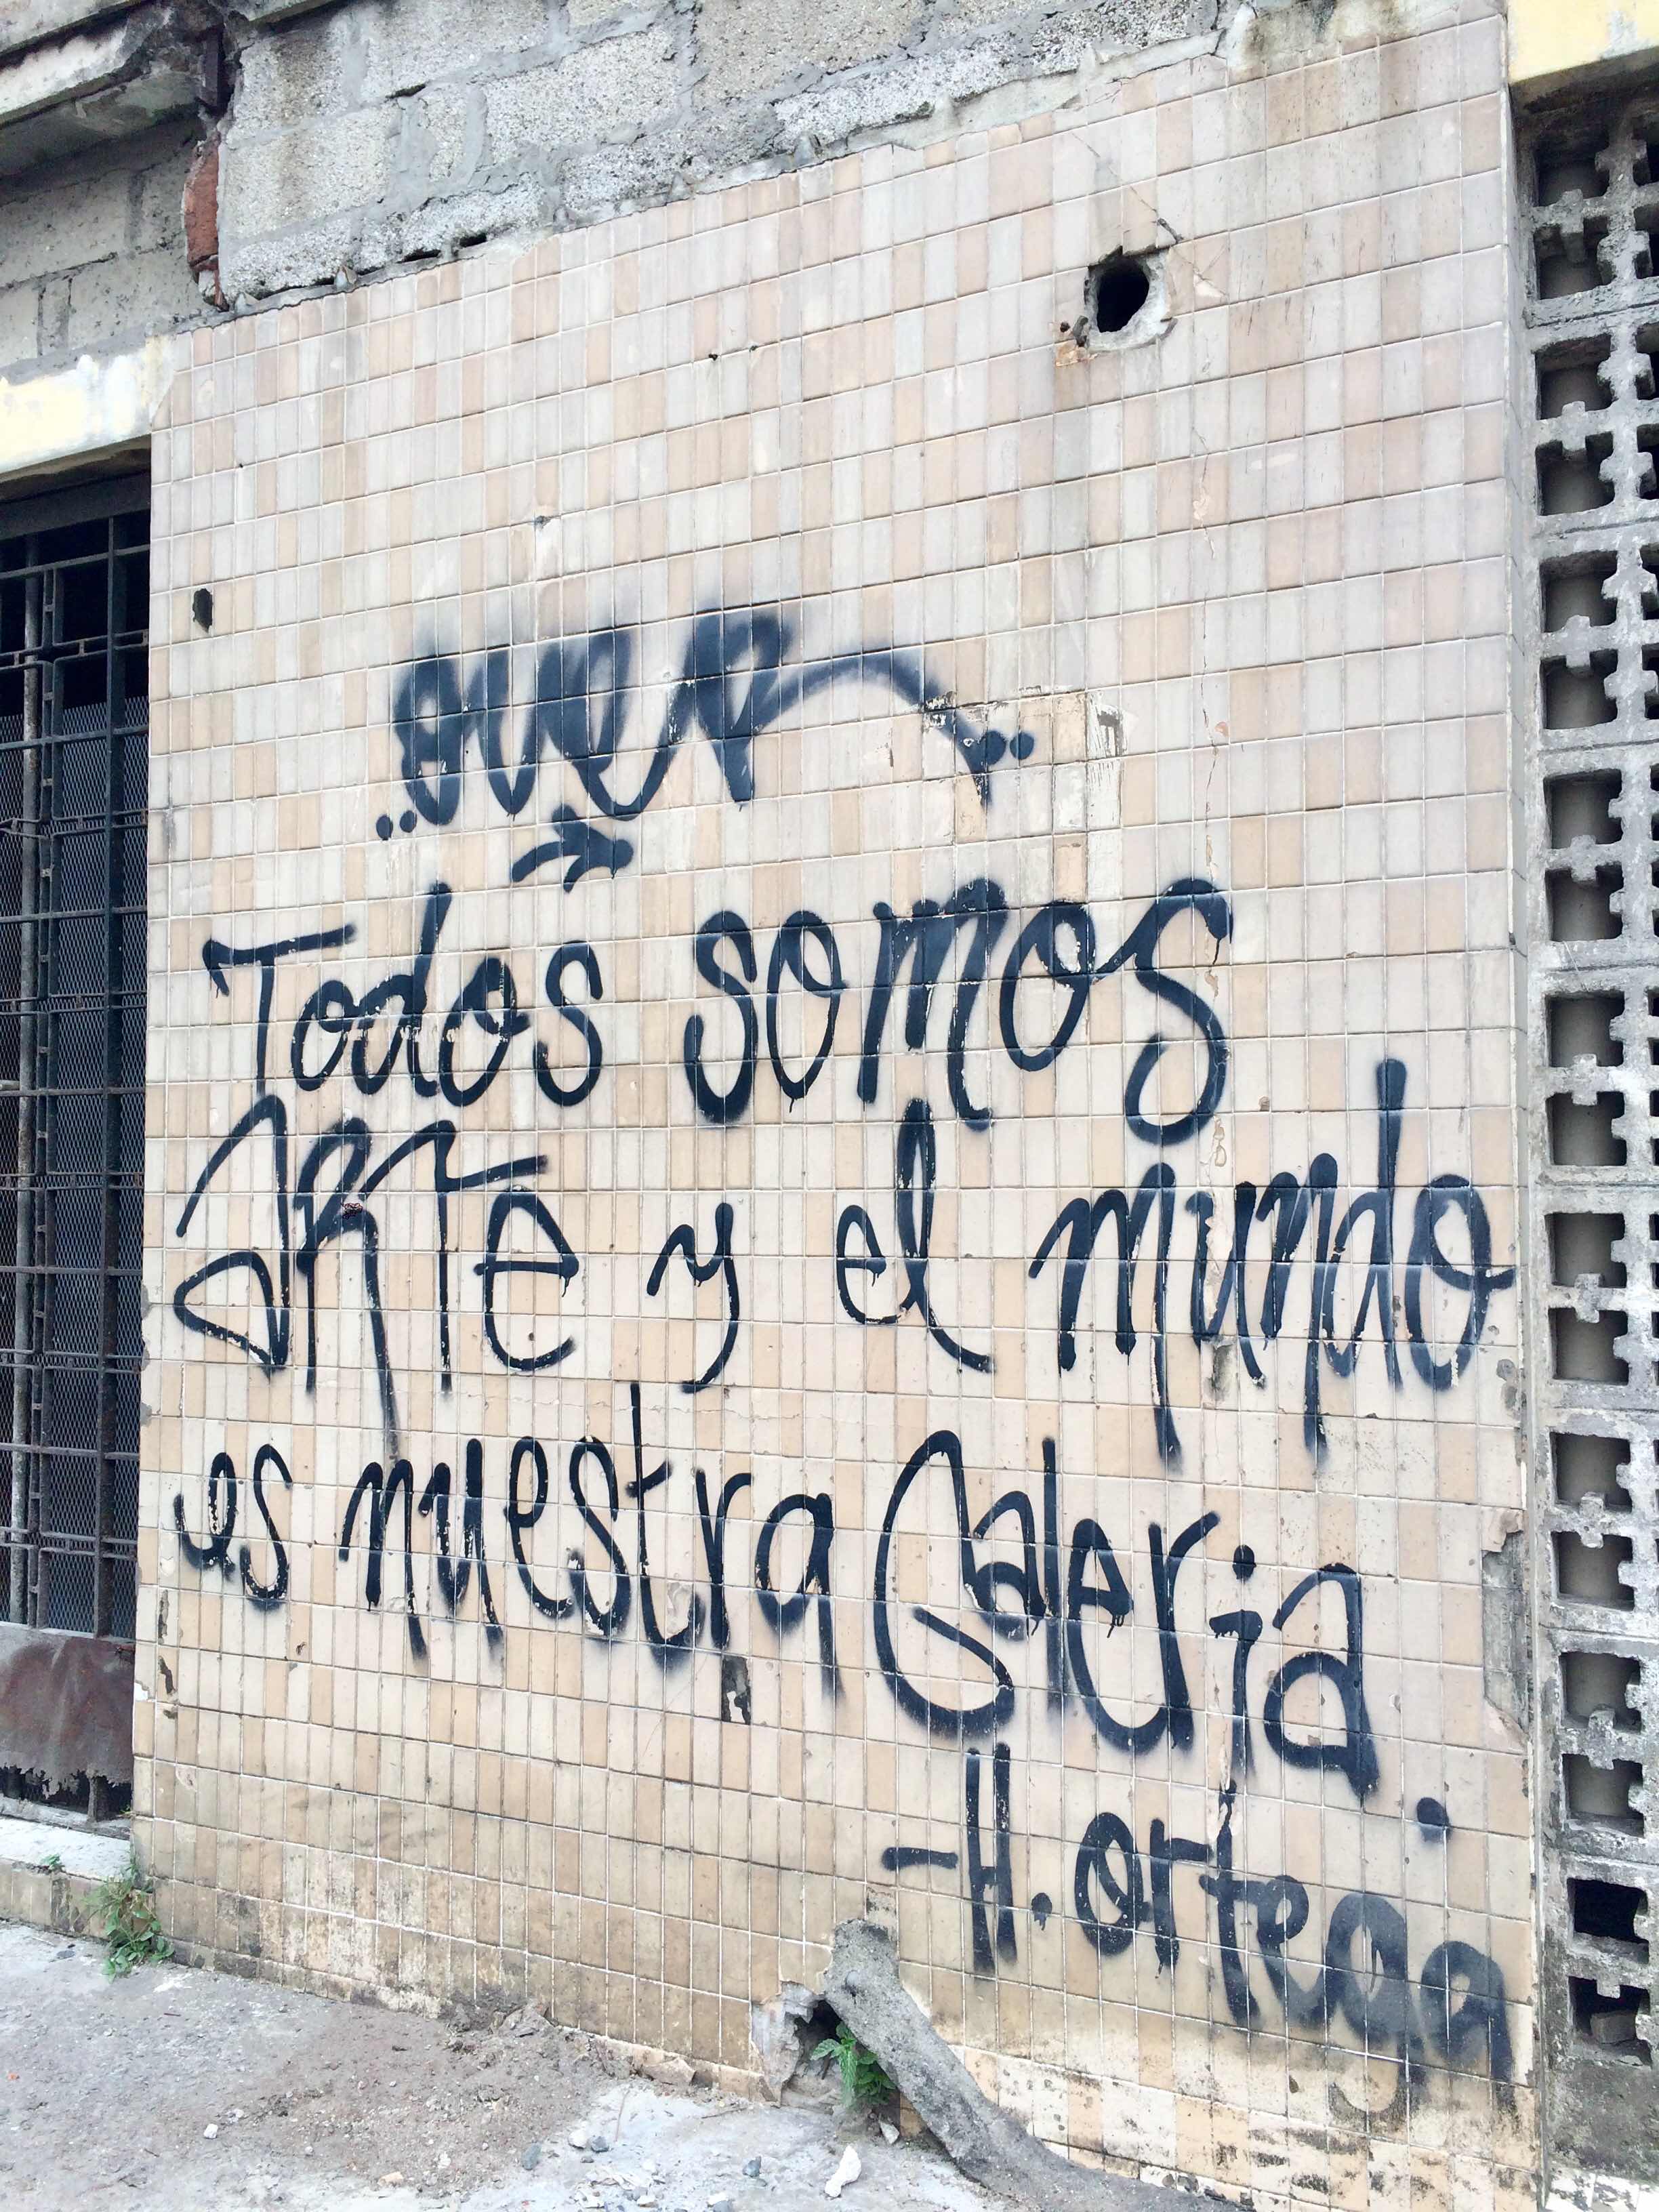 Todos somos
ARTE y el mundo
es nuestra Galeria.
-H. ortega